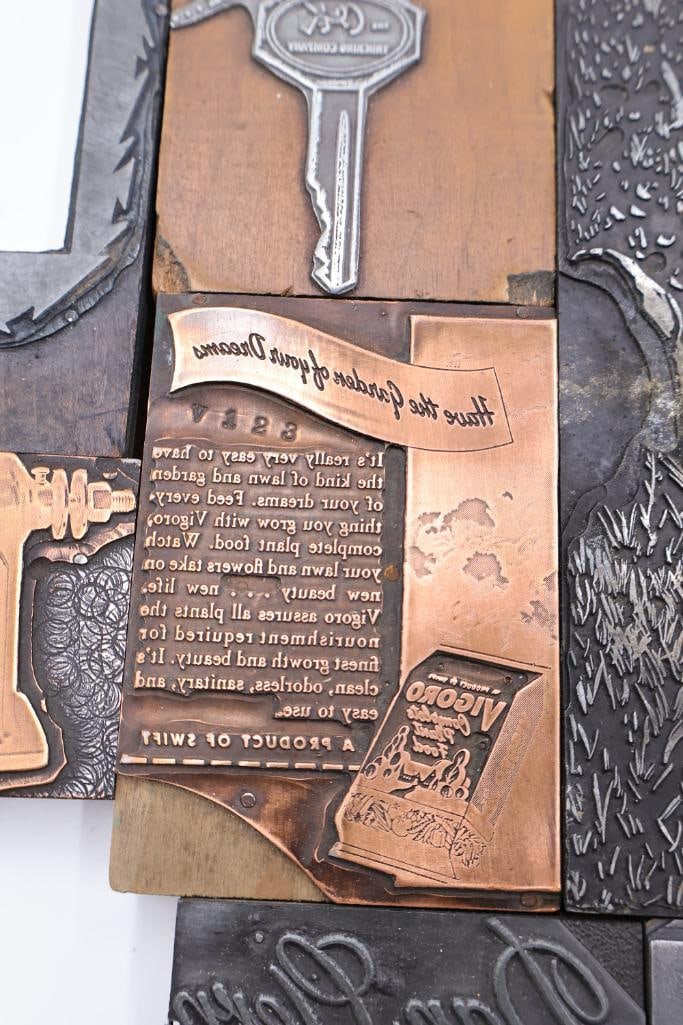 THE
Cook
TRUCKING COMPANY
Have the Garden of your Dreams
It's really very easy to have
the kind of lawn and garden
of your dreams. Feed every-
thing you grow with Vigoro,
complete plant food. Watch
your lawn and flowers take on
new beauty . . . . new life.
Vigoro assures all plants the
nourishment required for
finest growth and beauty. It's
clean, odorless, sanitary, and
easy to use.
A PRODUCT OF SWIFT
A PRODUCT OF SWIFT
VIGORO
Complete
Plant
Food